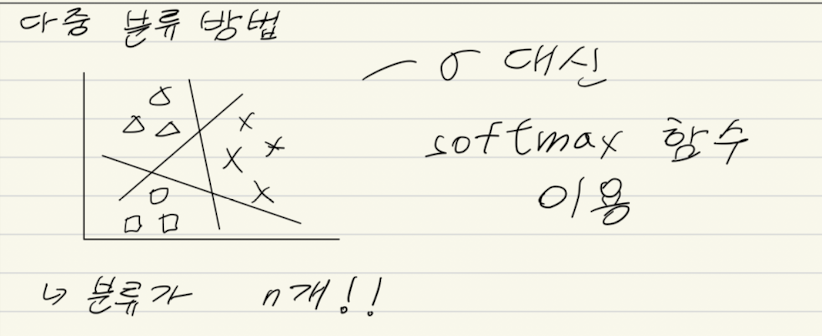 다중 분류 방법
— σ 대신
softmax 함수
이용
↳ 분류가 n개!!